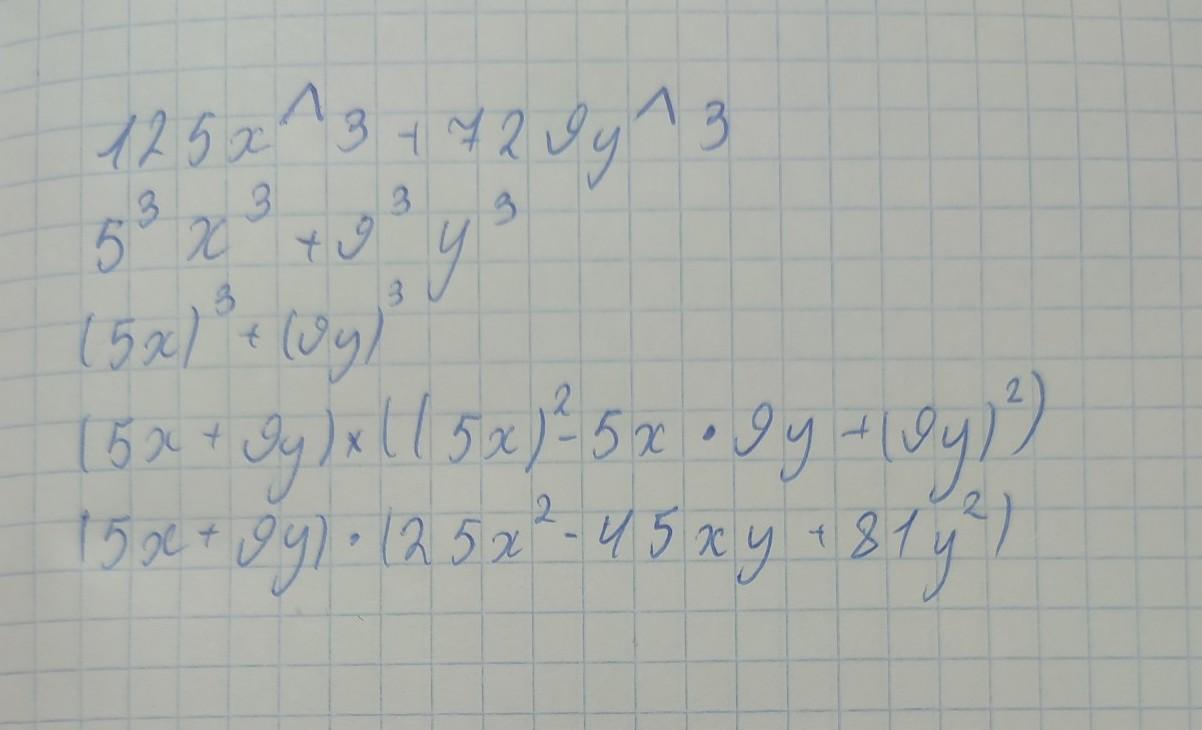 125x^3+729y^3
5³x³+9³y³
(5x)³+(9y)³
(5x+9y)×((5x)²-5x·9y+(9y)²)
(5x+9y)·(25x²-45xy+81y²)